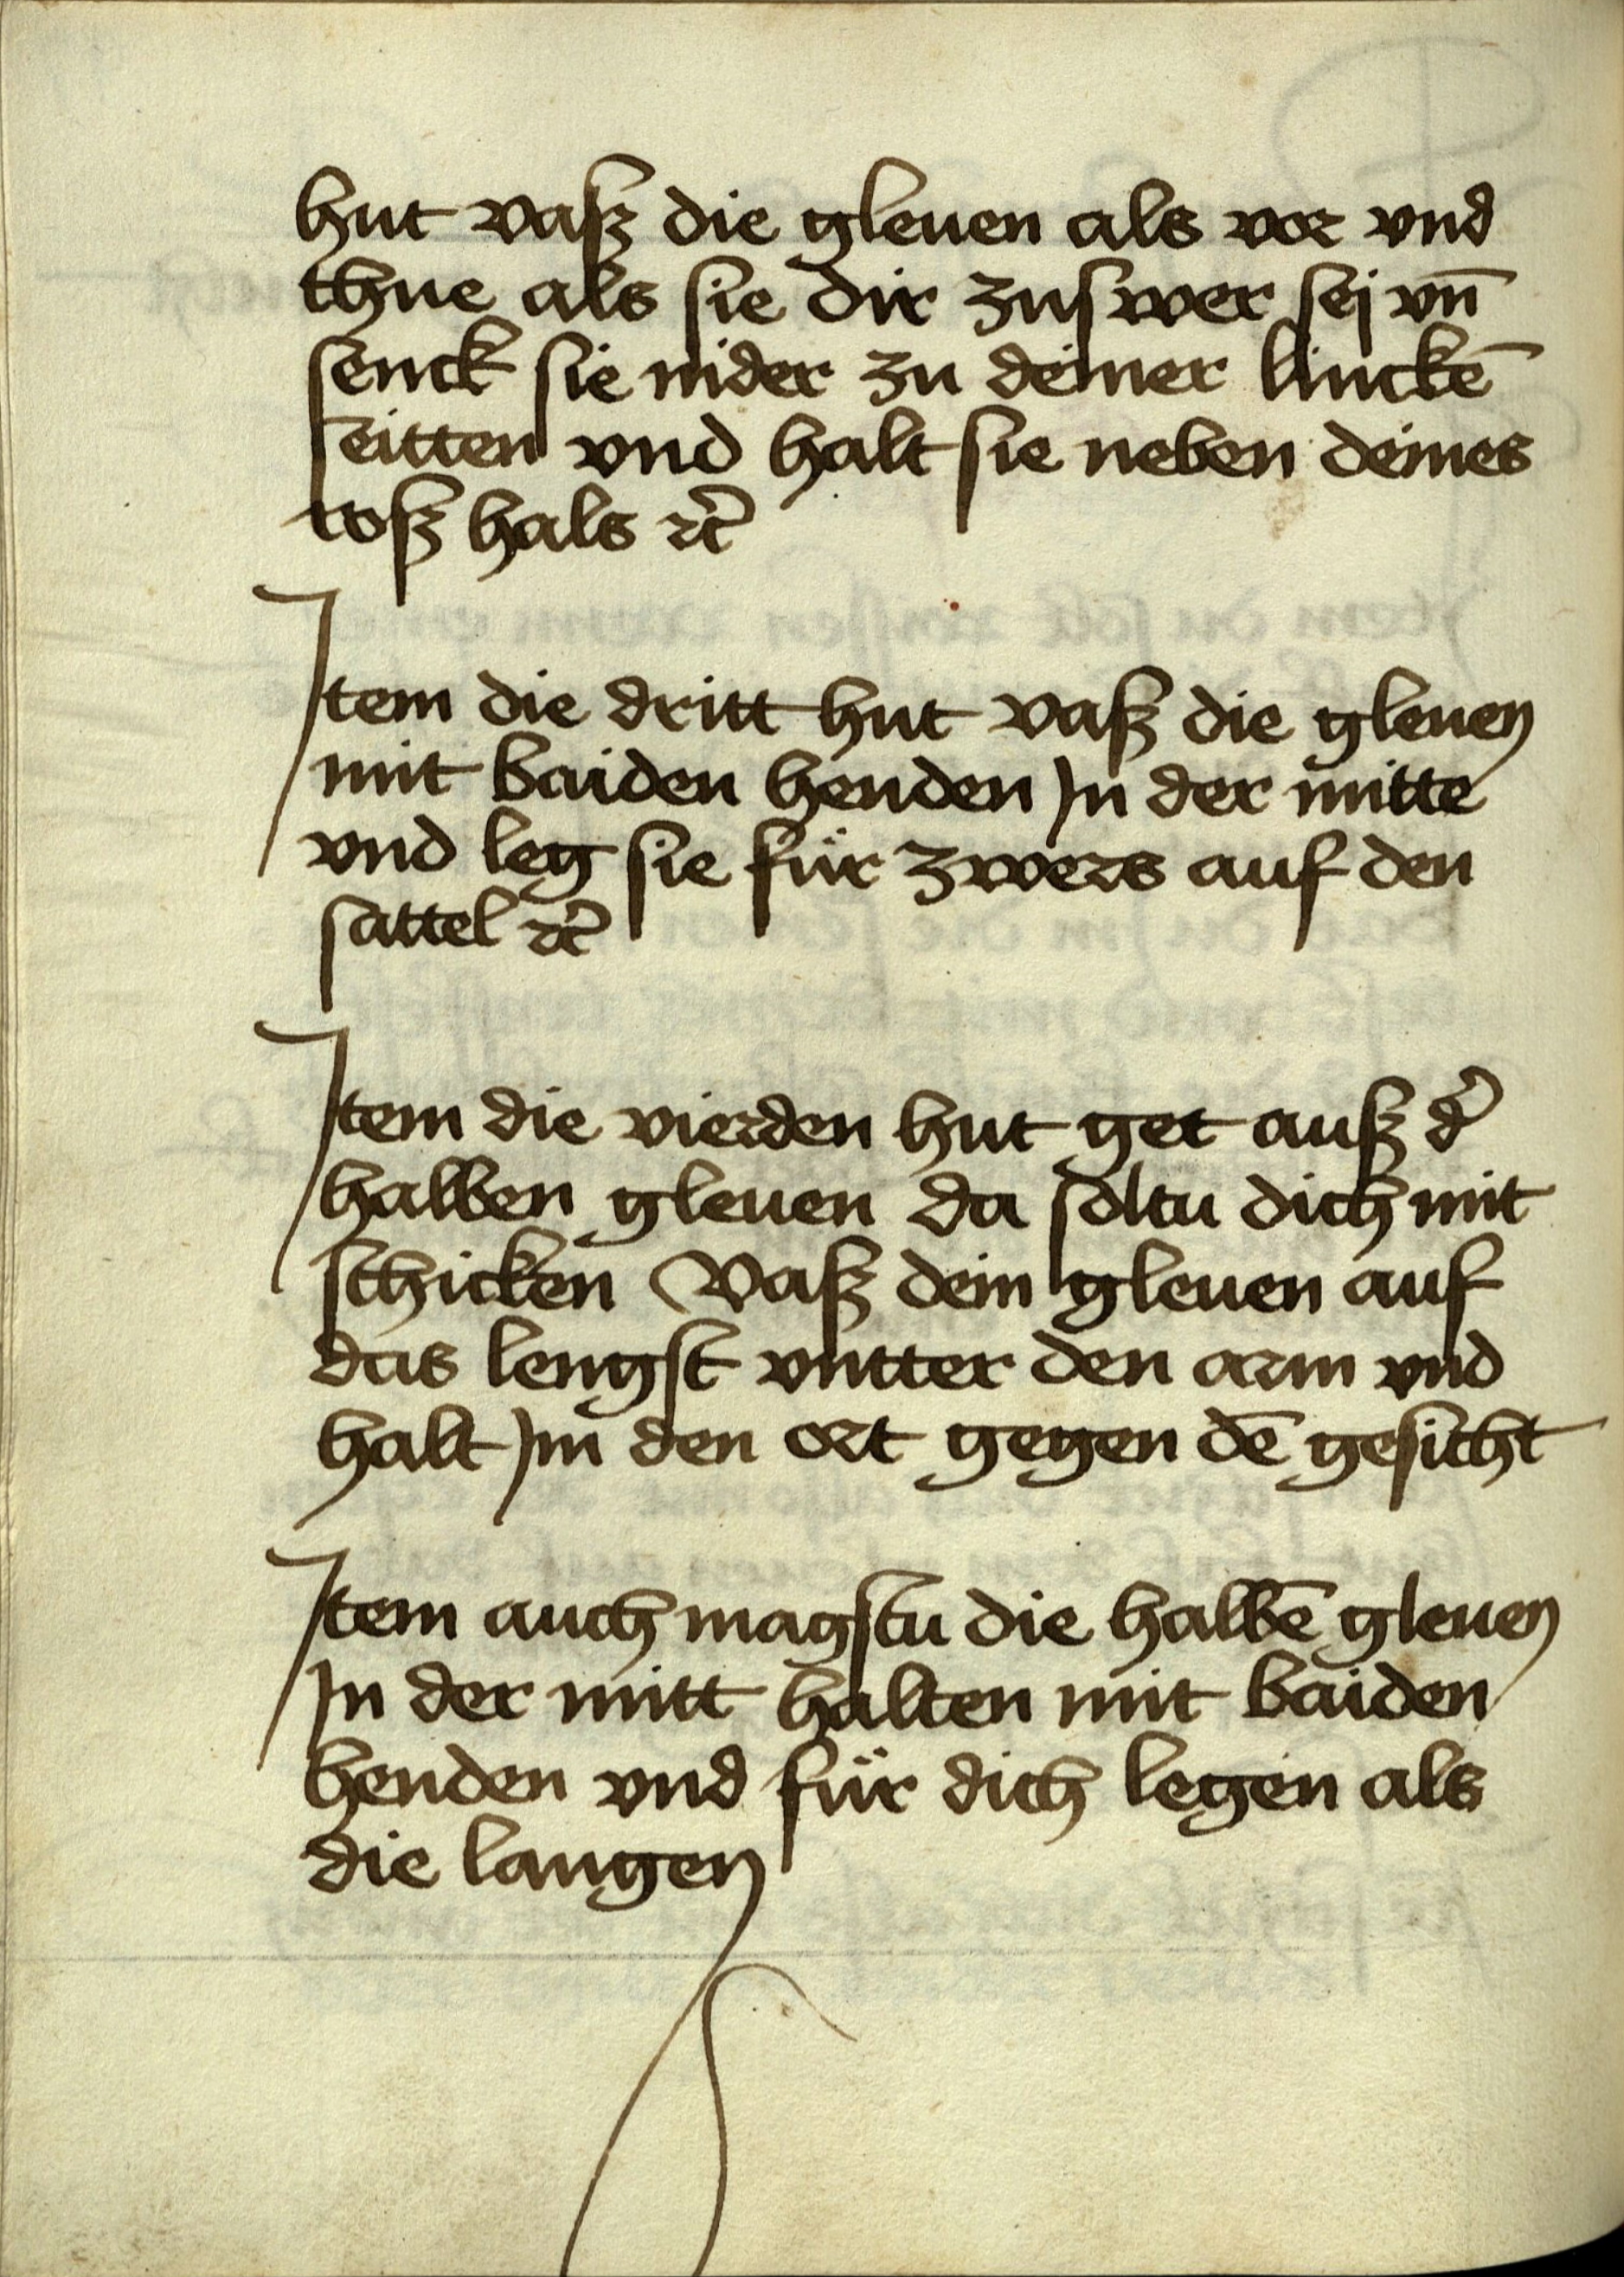 hut vasß die gleuen als vor vnd
thue als sie dir zuswer sej vn̄
senck sie nider zu deiner linckē
seitten vnd halt sie neben deines
roß hals ꝛc̄
Item die dritt hut vaß die gleuen
mit baiden henden Jn der mitte
vnd leg sie für zwers auf den
sattel ꝛc̄
Item die vierden hut get auß d̄
halben gleuen da soltu dich mit
schicken Vaß dein gleuen auf
das lengst vntter den arm vnd
halt Jm den ort gegen dē gesicht
Item auch magstu die halbē gleuen
Jn der mitt halten mit baiden
henden vnd für dich legen als
die langen